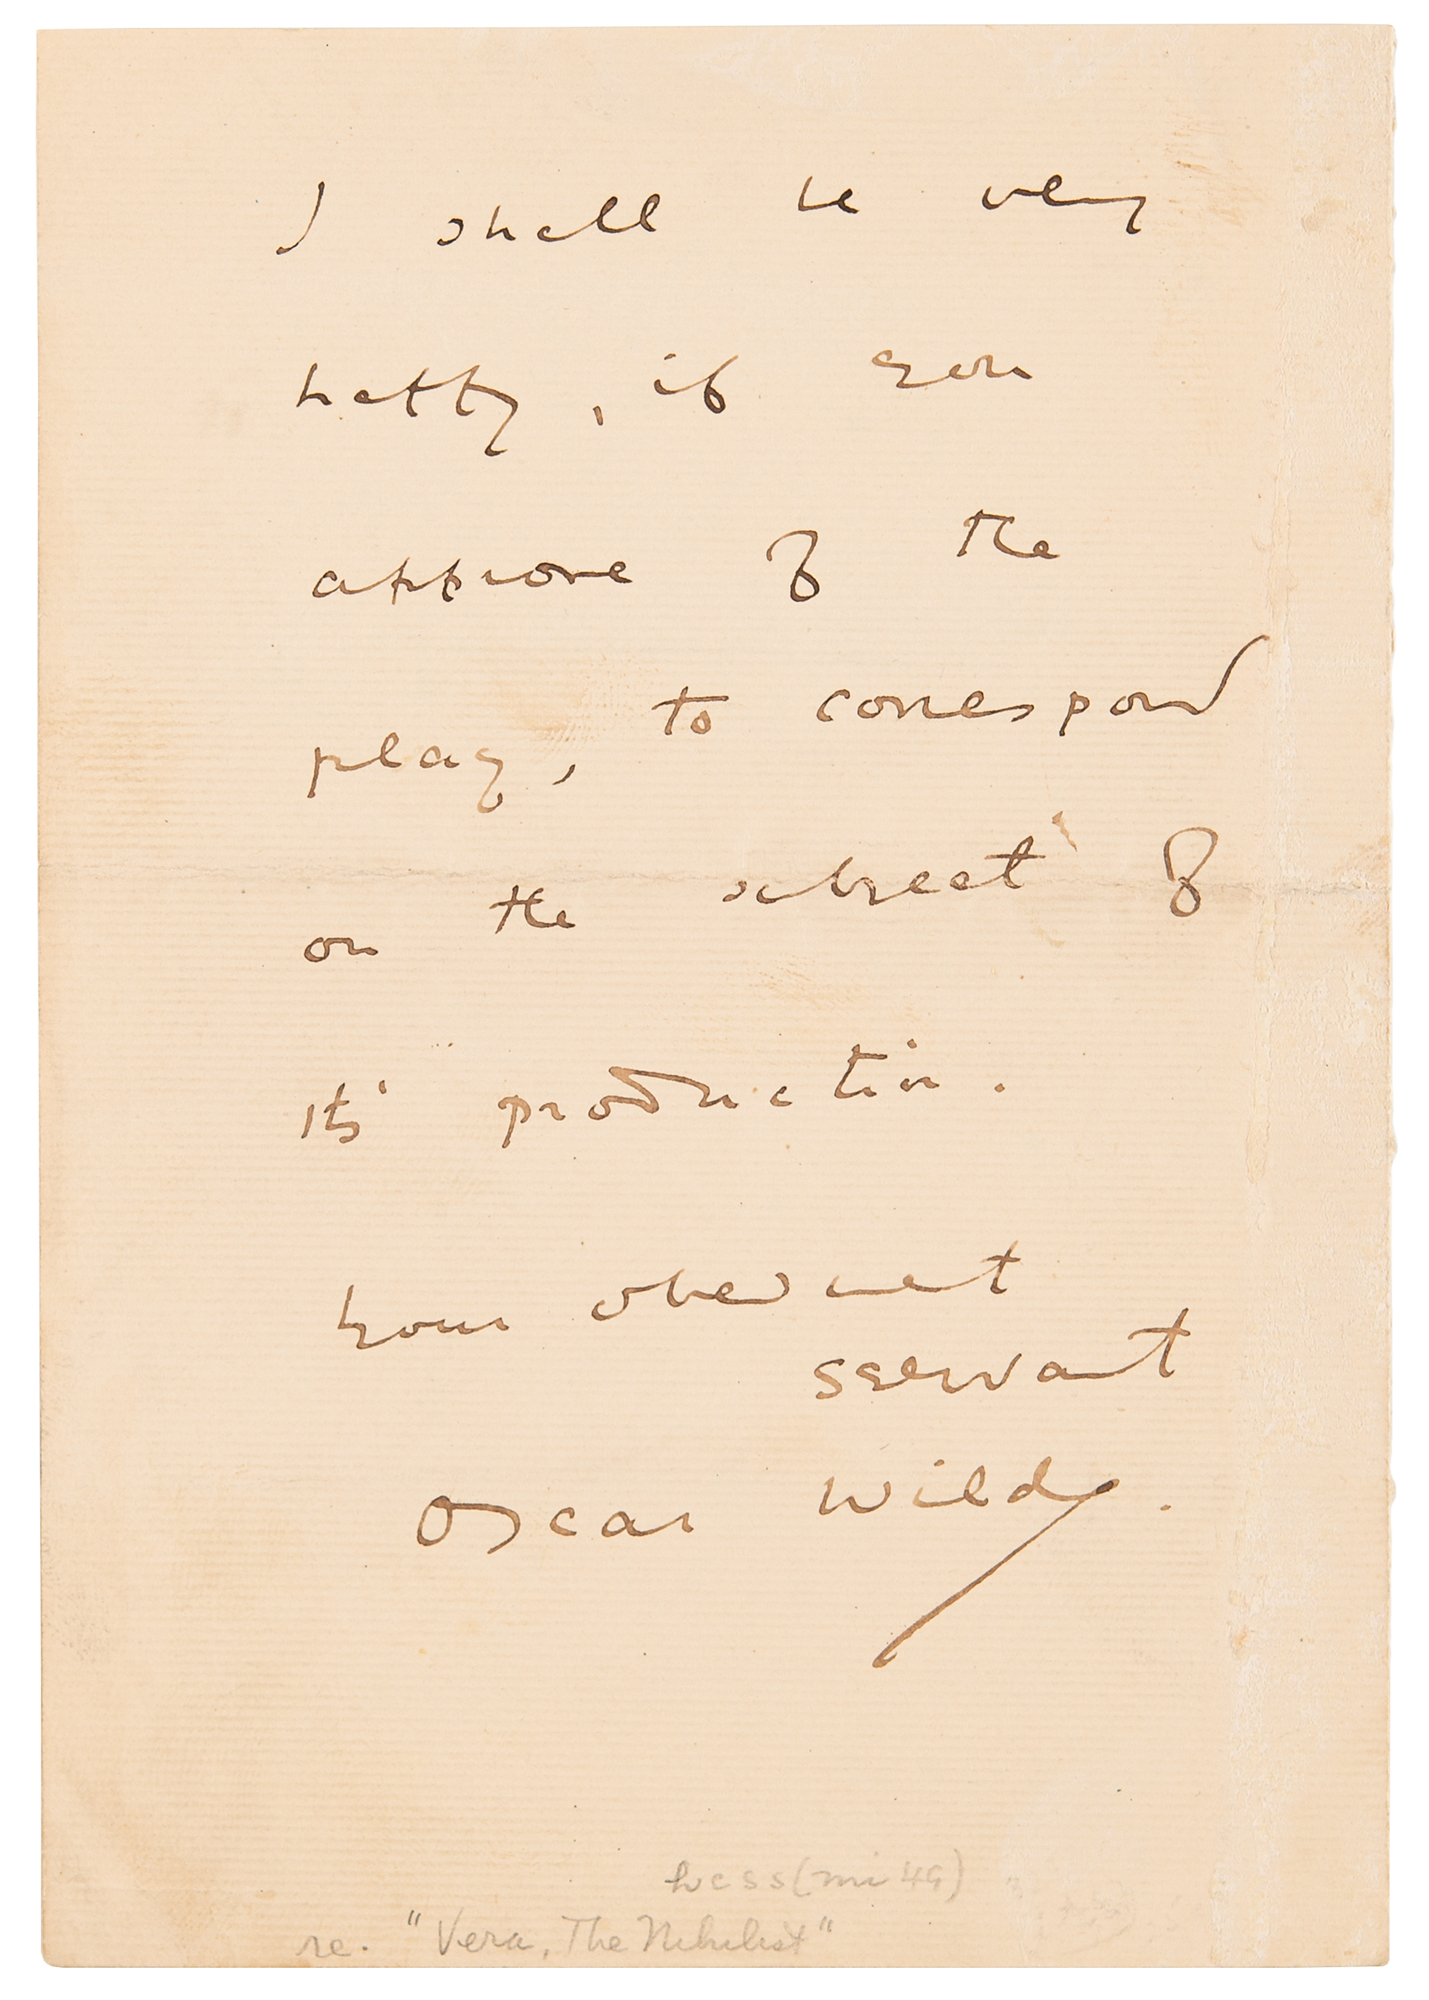 I shall be very
happy, if you
approve of the
play, to correspond
on the subject of
its' production.
your obedient
servant
Oscar Wilde.
re. "Vera, The Nihilist"